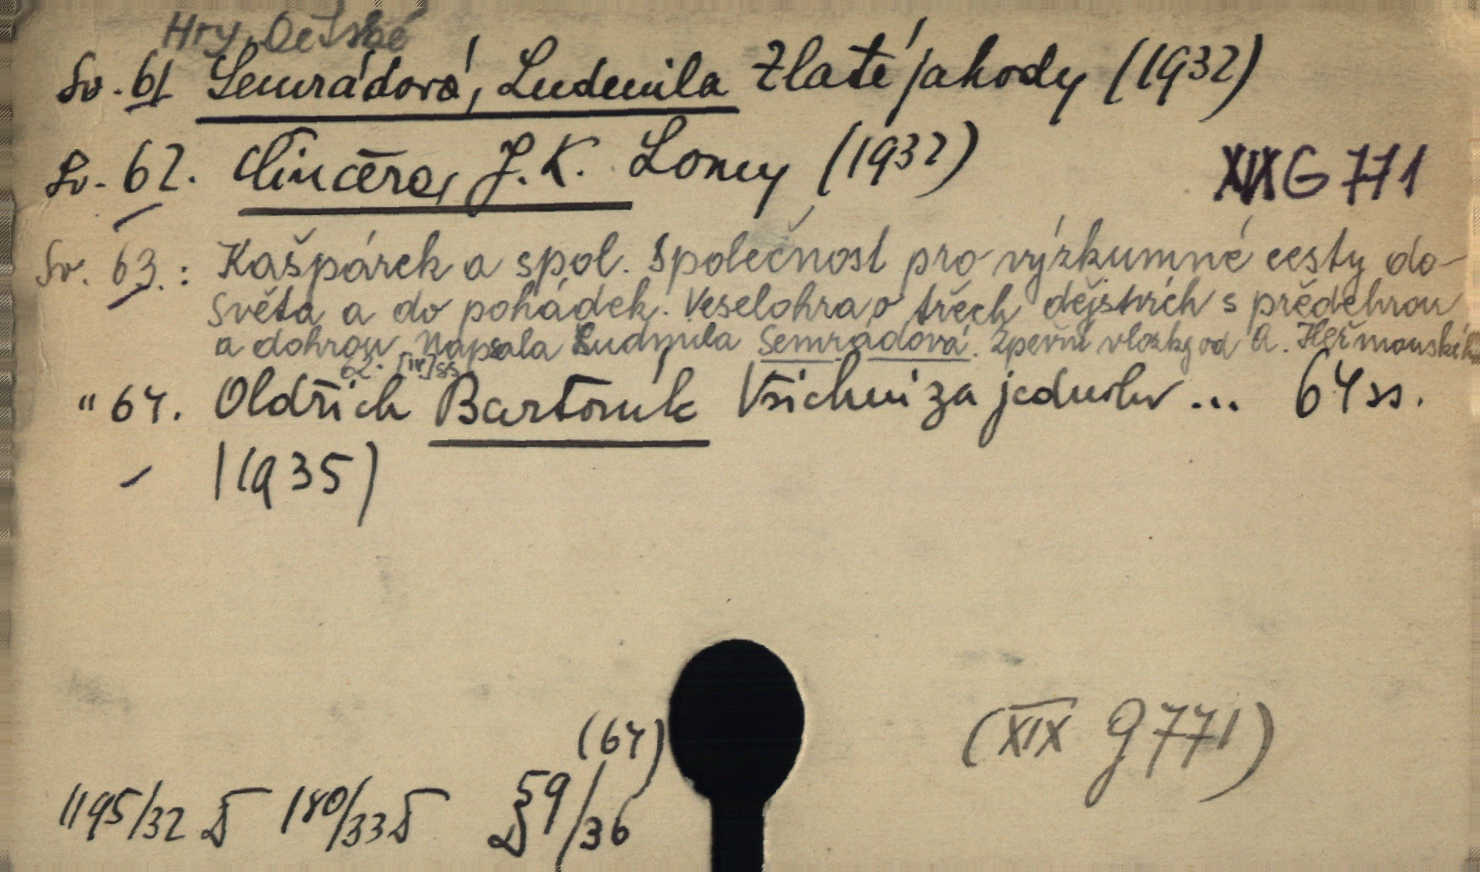 Hry Dětské
Sv. 61 Semrádová, Ludmila Zlaté jahody (1932)
Sv. 62. J. K. Lomy (1932)
XIX G 771
Sv. 63.: Kašpárek a spol. Společnost pro výzkumné cesty do
Světa a do pohádek. Veselohra o třech dějstvích s předehrou
a dohrou. Napsala Ludmila Semrádová. Zpěvní vložky od A.
62. [IV] ss.
" 64. Oldřich Bartoník Všichni za jednoho ... 64 ss.
(1935)
(64)
(XIX G 771)
1195/32 D 180/33 D D 59/36